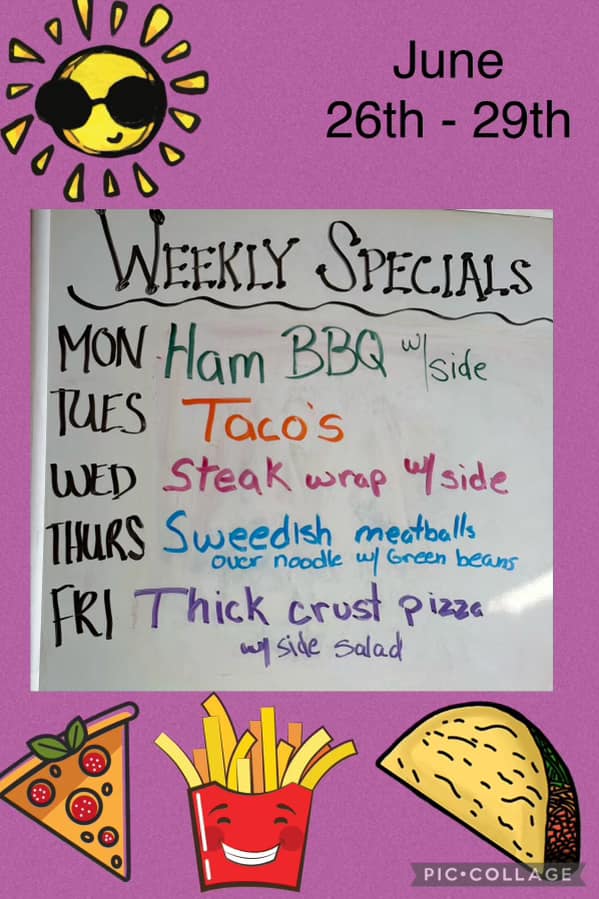 June
26th - 29th
WEEKLY SPECIALS
MON Ham BBQ w/side
TUES Taco's
WED Steak wrap w/side
THURS Sweedish meatballs
over noodle w/ Green beans
FRI Thick crust pizza
w/ side salad
PIC•COLLAGE